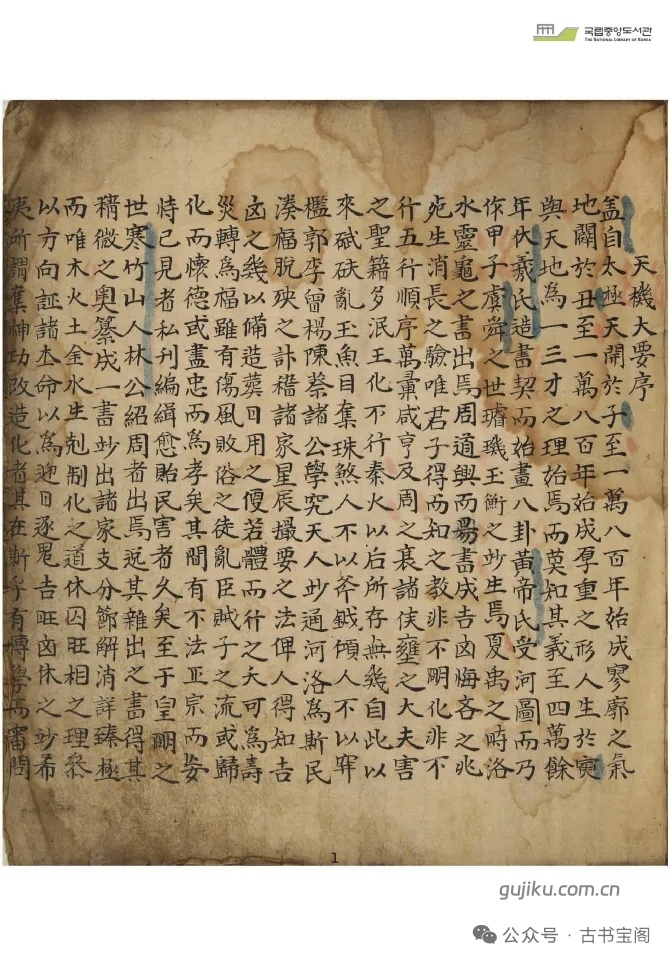 국립중앙도서관
THE NATIONAL LIBRARY OF KOREA
天機大要序
盖自太極天開於子至一萬八百年始成寥廓之氣
地闢於丑至一萬八百年始成厚重之形人生於寅
與天地爲一三才之理始焉而莫知其義至四萬餘
年伏羲氏造書契而始畫八卦黃帝氏受河圖而乃
作甲子虞舜之世璿璣玉衡之妙生焉夏禹之時洛
水靈龜之書出焉周道興而易書成吉凶悔吝之兆
死生消長之驗唯君子得而知之敎非不明化非不
行五行順序萬彙咸亨及周之衰諸侯壅之大夫害
之聖籍多泯王化不行秦火以后所存無幾自此以
來碔砆亂玉魚目奪珠煞人不以斧鉞傾人不以穽
檻郭李曾楊陳蔡諸公學究天人妙通河洛爲斯民
湊福脫殃之計稽諸家星辰撮要之法俾人得知吉
凶之幾以備造葬日用之便若體而行之夭可爲壽
災轉爲福雖有傷風敗俗之徒亂臣賊子之流或歸
化而懷德或盡忠而爲孝矣其間有不法正宗而妄
恃己見者私刊編緝愈貽民害者久矣至于皇明之
世寒竹山人林公紹周者出焉其雜出之書得其
精微之奧纂成一書妙出諸家支分節解消詳臻極
而唯木火土金水生剋制化之道休囚旺相之理叅
以方向証諸本命以爲迎日逐鬼吉旺凶休之妙希
夷所謂奪神功改造化者其在斯乎有博學而審問
1
gujiku.com.cn
公众号 · 古书宝阁